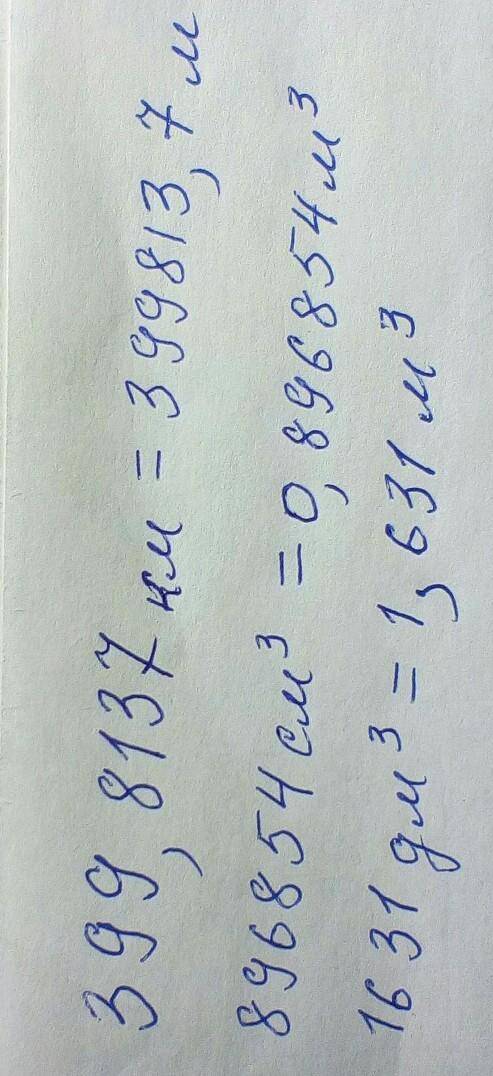 399,8137 км = 399813,7 м
896854 см³ = 0,896854 м³
1631 дм³ = 1,631 м³